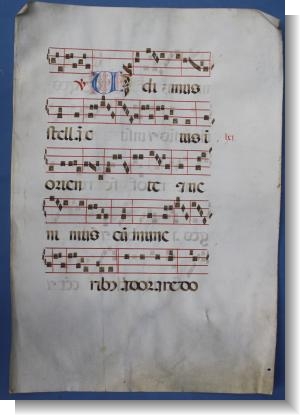 ℣ Vi di mus
stellā e ius i
orien te ⁊ ve
ni mus cū mune
rib⁹ adorare do